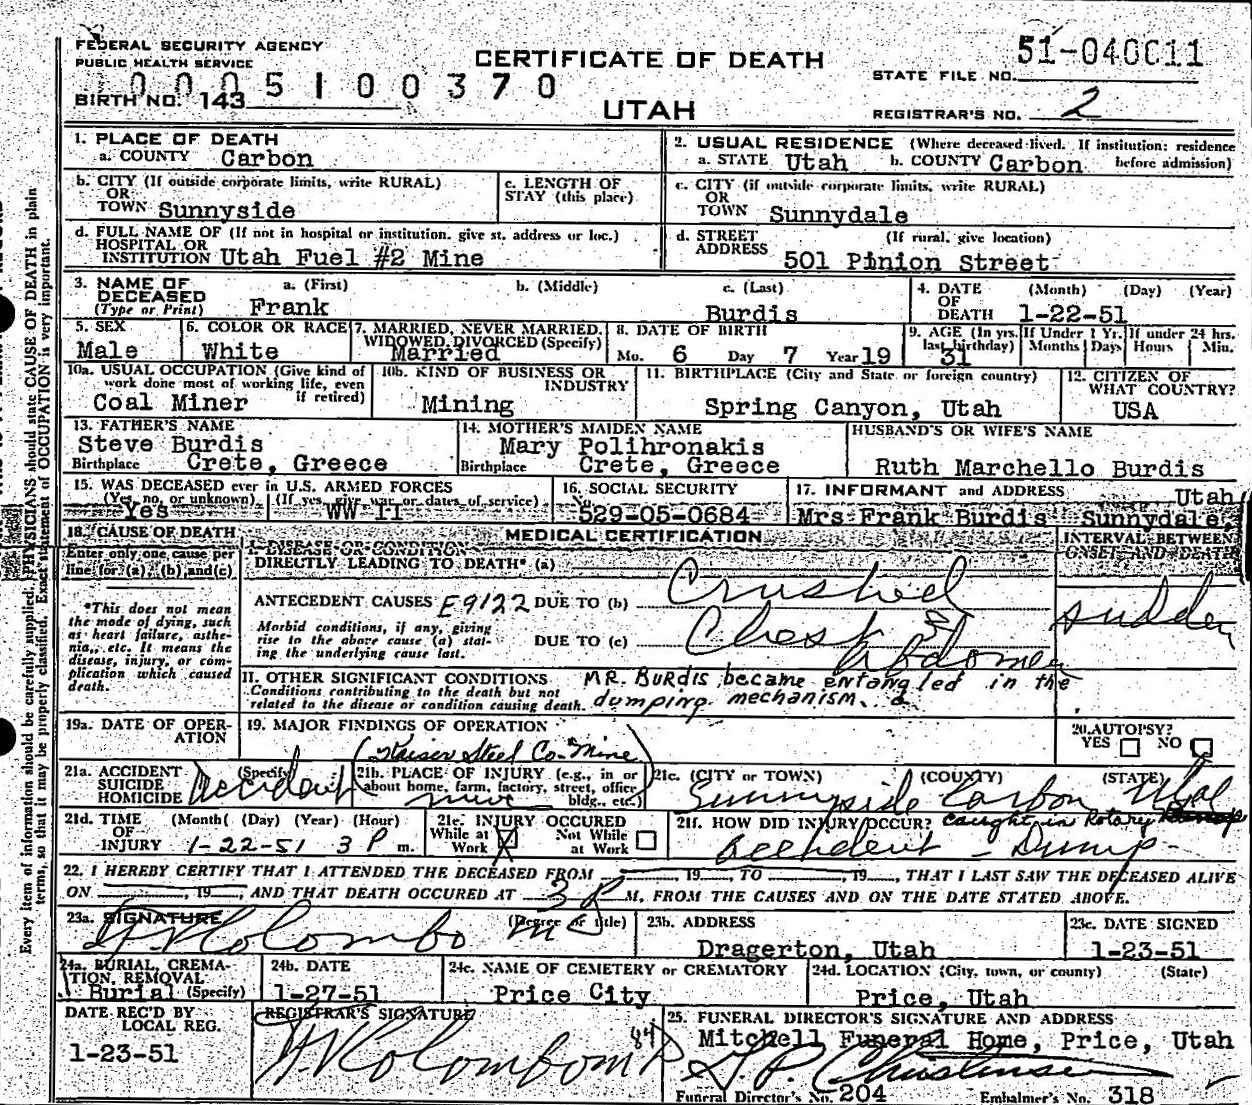 FEDERAL SECURITY AGENCY
PUBLIC HEALTH SERVICE
CERTIFICATE OF DEATH
UTAH
0005100370
BIRTH NO. 143
STATE FILE NO. 51-040011
REGISTRAR'S NO. 2
1. PLACE OF DEATH
a. COUNTY Carbon
2. USUAL RESIDENCE (Where deceased lived. If institution: residence before admission)
a. STATE Utah b. COUNTY Carbon
b. CITY (If outside corporate limits, write RURAL)
OR
TOWN Sunnyside
c. LENGTH OF
STAY (this place)
c. CITY (if outside corporate limits, write RURAL)
OR
TOWN Sunnydale
d. FULL NAME OF (If not in hospital or institution, give st. address or loc.)
HOSPITAL OR
INSTITUTION Utah Fuel #2 Mine
d. STREET (If rural, give location)
ADDRESS 501 Pinion Street
3. NAME OF DECEASED (Type or Print)
a. (First) b. (Middle) c. (Last)
Frank Burdis
4. DATE OF DEATH (Month) (Day) (Year)
1-22-51
5. SEX
Male
6. COLOR OR RACE
White
7. MARRIED, NEVER MARRIED,
WIDOWED, DIVORCED (Specify)
Married
8. DATE OF BIRTH
Mo. 6 Day 7 Year 19
9. AGE (In yrs. last birthday) 31
If Under 1 Yr. Months Days
If under 24 hrs. Hours Min.
10a. USUAL OCCUPATION (Give kind of
work done most of working life, even
if retired)
Coal Miner
10b. KIND OF BUSINESS OR
INDUSTRY
Mining
11. BIRTHPLACE (City and State or foreign country)
Spring Canyon, Utah
12. CITIZEN OF
WHAT COUNTRY?
USA
13. FATHER'S NAME
Steve Burdis
Birthplace Crete, Greece
14. MOTHER'S MAIDEN NAME
Mary Polihronakis
Birthplace Crete, Greece
HUSBAND'S OR WIFE'S NAME
Ruth Marchello Burdis
15. WAS DECEASED ever in U.S. ARMED FORCES
(Yes, no, or unknown) (If yes, give war or dates of service)
Yes WW II
16. SOCIAL SECURITY
No.
529-05-0684
17. INFORMANT and ADDRESS
Utah
Mrs Frank Burdis Sunnydale,
18. CAUSE OF DEATH
Enter only one cause per
line for (a), (b), and (c)
MEDICAL CERTIFICATION
INTERVAL BETWEEN
ONSET AND DEATH
I. DISEASE OR CONDITION
DIRECTLY LEADING TO DEATH* (a)
Crushed
ANTECEDENT CAUSES E9122 DUE TO (b)
Chest &
sudden
*This does not mean
the mode of dying, such
as heart failure, asthe-
nia, etc. It means the
disease, injury, or com-
plication which caused
death.
Morbid conditions, if any, giving
rise to the above cause (a) stat-
ing the underlying cause last.
DUE TO (c)
Abdomen
II. OTHER SIGNIFICANT CONDITIONS
Conditions contributing to the death but not
related to the disease or condition causing death.
MR. BURDIS became entangled in the
dumping mechanism.
19a. DATE OF OPER-
ATION
19. MAJOR FINDINGS OF OPERATION
20. AUTOPSY?
YES NO
(Kaiser Steel Co-Mine)
21a. ACCIDENT
SUICIDE
HOMICIDE
(Specify)
Accident
21b. PLACE OF INJURY (e.g., in or
about home, farm, factory, street, office
bldg., etc.)
mine
21c. (CITY or TOWN) (COUNTY) (STATE)
Sunnyside Carbon Utah
21d. TIME OF INJURY (Month) (Day) (Year) (Hour)
1-22-51 3 P m.
21e. INJURY OCCURED
While at Work X Not While at Work
21f. HOW DID INJURY OCCUR? Caught in Rotary
Accident - Dump
22. I HEREBY CERTIFY THAT I ATTENDED THE DECEASED FROM , 19 TO , 19 , THAT I LAST SAW THE DECEASED ALIVE
ON , 19 , AND THAT DEATH OCCURED AT 3 P M, FROM THE CAUSES AND ON THE DATE STATED ABOVE.
23a. SIGNATURE (Degree or title)
Colombo MD
23b. ADDRESS
Dragerton, Utah
23c. DATE SIGNED
1-23-51
24a. BURIAL, CREMA-
TION, REMOVAL
Burial (Specify)
24b. DATE
1-27-51
24c. NAME OF CEMETERY or CREMATORY
Price City
24d. LOCATION (City, town, or county) (State)
Price, Utah
DATE REC'D BY
LOCAL REG.
1-23-51
REGISTRAR'S SIGNATURE
Colombo MD
84
25. FUNERAL DIRECTOR'S SIGNATURE AND ADDRESS
Mitchell Funeral Home, Price, Utah
Christensen
Funeral Director's No. 204 Embalmer's No. 318
Every item of information should be carefully supplied. PHYSICIANS should state CAUSE OF DEATH in plain
terms, so that it may be properly classified. Exact statement of OCCUPATION is very important.